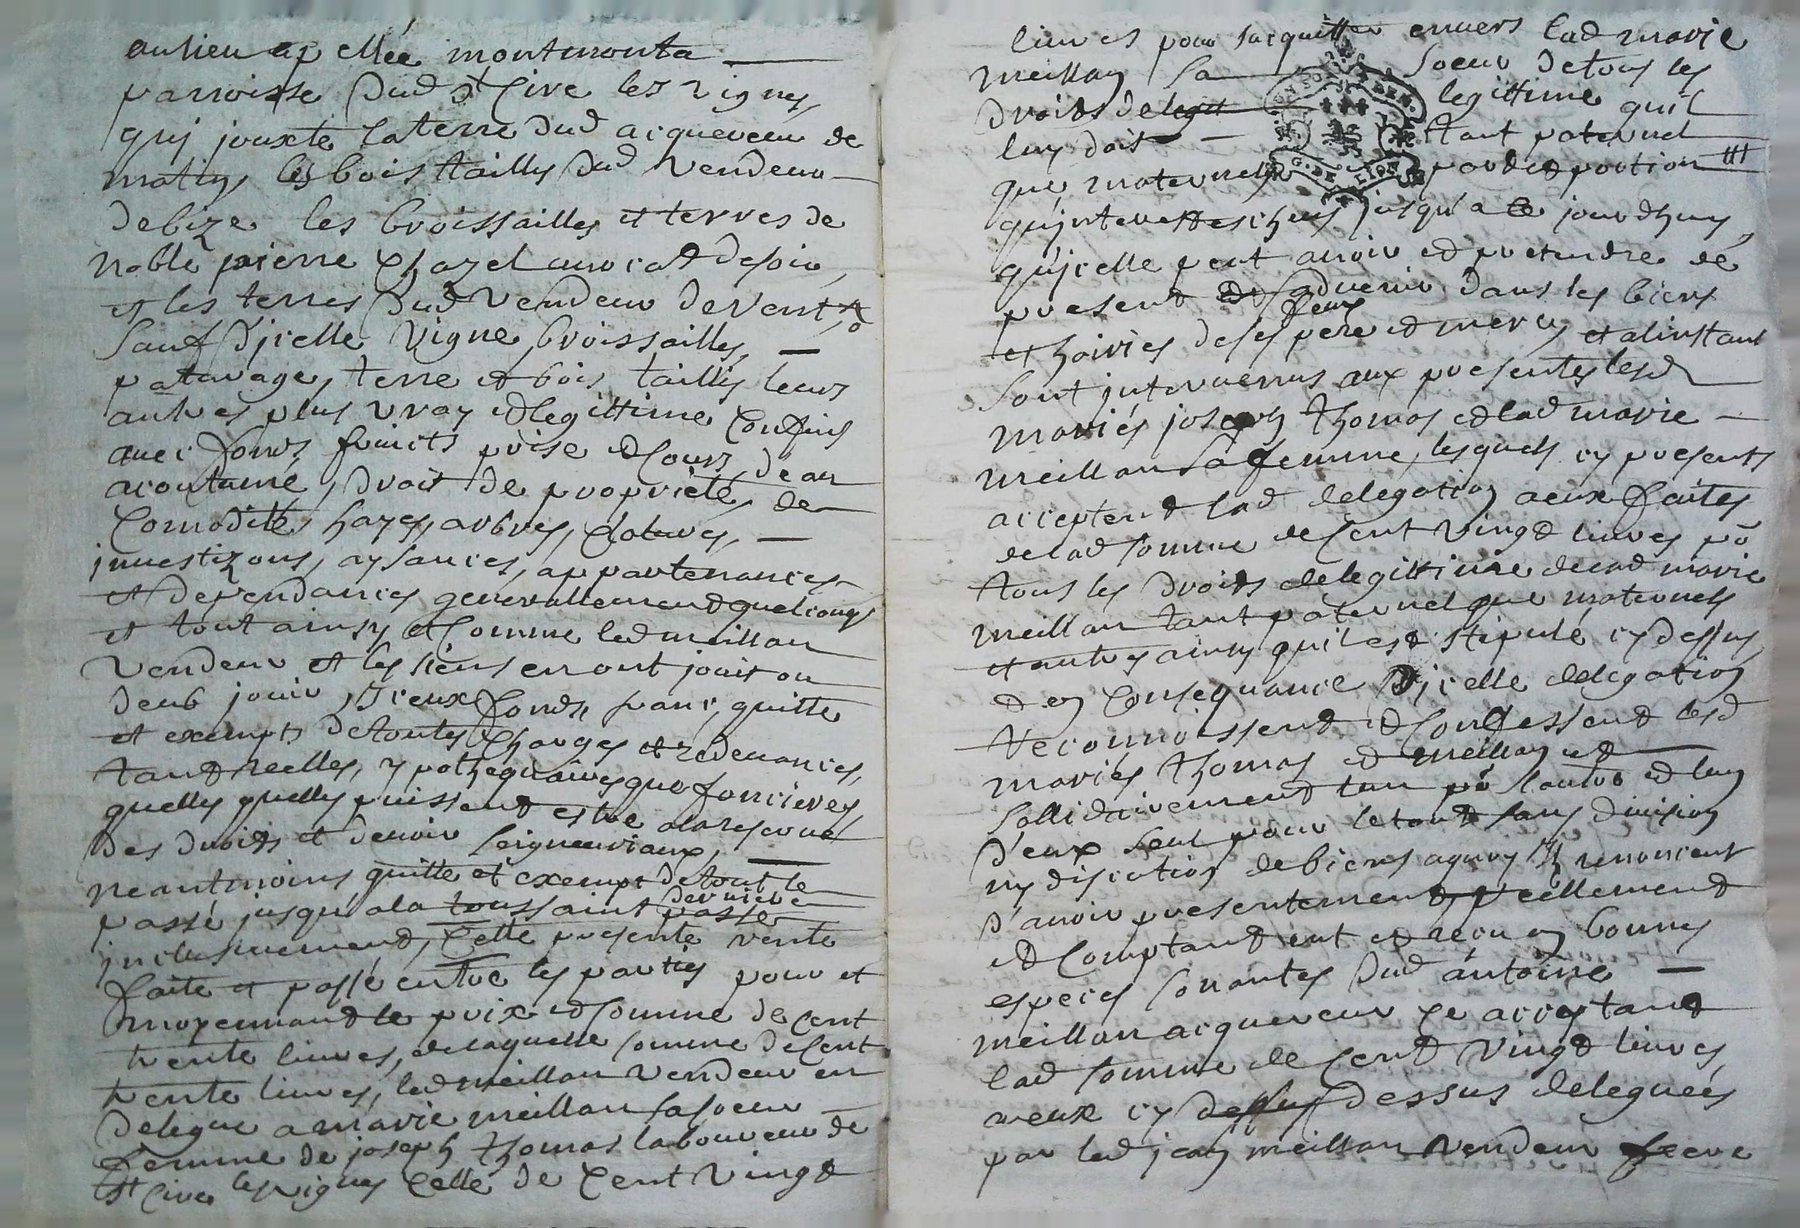 au lieu apellée montmonta
parroisse dud st Cire les vignes
quj jouxte la terre dud acquereur de
matin, les bois taillis dud vendeur
de bize les broissailles et terres de
noble pierre chazel avocat de soir,
et les terres dud vendeur de vent
sauf djcelle vigne, broissailles,
paturage, terre et bois taillis leurs
autres plus vray et legittime confins
avec fonds fruicts prise et cours d'eau
acoutumé, droit de proprieté, de
comodité, hayes, arbres, clotures,
investizons, aysances, appartenances
et dependances generallement quelconqs
et tout ainsy et comme led meillan
vendeur et les siens en ont jouit ou
deub jouir, d'jceux fonds franc, quitte
et exempts de toutes charges et redevances,
tant reelles, ypothequaires que foncieres,
quelles quelles puissent estre alareserve
des droits et devoir seigneuriaux,
neantmoins quitte et exempt de tout le
passé jusqu'ala toussaint derniere passé
jnclusivement, cette presente vente
faite et passé entre les parties pour et
moyennant le prix et somme de cent
trente livres, de laquelle somme de cent
trente livres, led meillan vendeur en
delegue a marie meillan sa soeur
femme de joseph thomas laboureur de
st Cire les vignes celle de cent vingt
livres pour sacquitter envers lad marie
meillan sa soeur de tous les
droits de legit legittime quil
luy doit tant paternel
que maternels part et portion
qu'jnterest eschus jusqu'a ce jourdhuy,
qu'jcelle peut avoir et pretendre de
present et advenir dans les biens
et hoiries de ses feux pere et mere, et alinstant
sont jntervenus aux presentes lesd
mariés joseph thomas et lad marie
meillan sa femme, lesquels cy presents
acceptent lad delegation a eux faites
de lad somme de cent vingt livres po
tous les droits de legittime de lad marie
meillan tant paternel que maternels
et autres ainsy quil est stipulé cy dessus,
et en consequance djcelle delegation
reconnoissent et confessent lesd
mariés thomas et meillan et
sollidairement lun po l'autre et lun
d'eux seul pour le tout sans division
ny discution de biens aquoy jls renoncent
d'avoir presentement, reellement
et comptant eut et receu en bonnes
especes sonantes dud antoine
meillan acquereur ce acceptant
lad somme de cent vingt livres
a eux cy dessus dessus deleguées
par led jean meillan vendeur frere